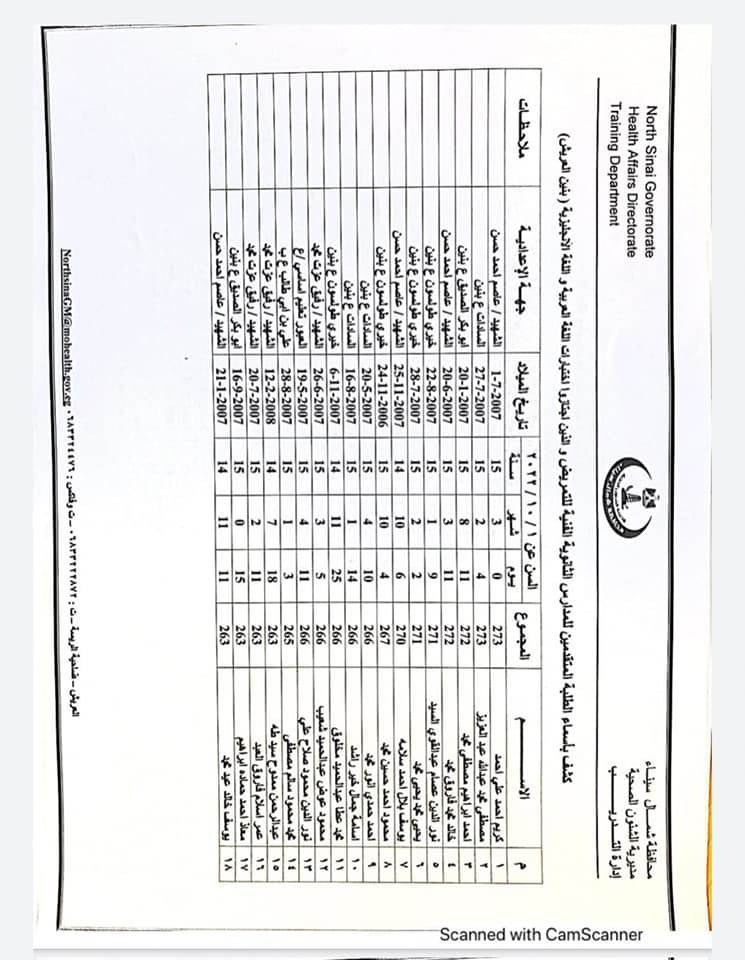 North Sinai Governorate
Health Affairs Directorate
Training Department
محافظة شمال سيناء
مديرية الشئون الصحية
إدارة التدريب
كشف بأسماء الطلبة المتقدمين للمدارس الثانوية الفنية للتمريض و الذين اجتازوا اختبارات اللغة العربية و اللغة الانجليزية (بنين العريش)
م الاســم المجموع السن عن ٢٠٢٢/١٠/١ تاريخ الميلاد جهة الإعدادية ملاحظات
يوم شهر سنة
١ كريم احمد علي احمد 273 0 3 15 1-7-2007 الشهيد / عاصم احمد حسن
٢ مصطفى محمد عبدالله عبد العزيز 273 4 2 15 27-7-2007 السادات ع بنين
٣ احمد ابراهيم مصطفى محمد 272 11 8 15 20-1-2007 ابو بكر الصديق ع بنين
٤ خالد محمد فاروق محمد 272 11 3 15 20-6-2007 الشهيد / عاصم احمد حسن
٥ نور الدين عصام عبدالقوي السيد 271 9 1 15 22-8-2007 خيري طولسون ع بنين
٦ يحيى محمد يحيى محمد 271 2 2 15 28-7-2007 خيري طولسون ع بنين
٧ يوسف بلال احمد سلامه 270 6 10 14 25-11-2007 الشهيد / عاصم احمد حسن
٨ محمود احمد حسين محمد 267 4 10 15 24-11-2006 خيري طولسون ع بنين
٩ احمد حمدي انور محمد 266 10 4 15 20-5-2007 السادات ع بنين
١٠ اسامة جمال خير راشد 266 14 1 15 16-8-2007 السادات ع بنين
١١ محمد عطا عبدالحميد مخلوق 266 25 11 14 6-11-2007 خيري طولسون ع بنين
١٢ محمود عوض عبدالحميد شعيب 266 5 3 15 26-6-2007 الشهيد / رفيق عزت محمد
١٣ نور الدين محمود صلاح علي 266 11 4 15 19-5-2007 العبور تعليم اساسي / ع
١٤ محمد محمود سالم مصطفى 265 3 1 15 28-8-2007 علي بن ابي طالب ع ب
١٥ عبدالرحمن ممدوح سيد طه 263 18 7 14 12-2-2008 الشهيد / رفيق عزت محمد
١٦ عمر اسلام فاروق العبد 263 11 2 15 20-7-2007 الشهيد / رفيق عزت محمد
١٧ معاذ احمد حماده ابراهيم 263 15 0 15 16-9-2007 ابو بكر الصديق ع بنين
١٨ يوسف خالد عيد محمد 263 11 11 14 21-1-2007 الشهيد / عاصم احمد حسن
العريش – ضاحية الريسة – ت : ٠٦٨٣٣٢٢٨٧٢ – ت وفاكس : ٠٦٨٣٣٢٤٤٧٦ NorthsinaGM@mohealth.gov.eg
Scanned with CamScanner